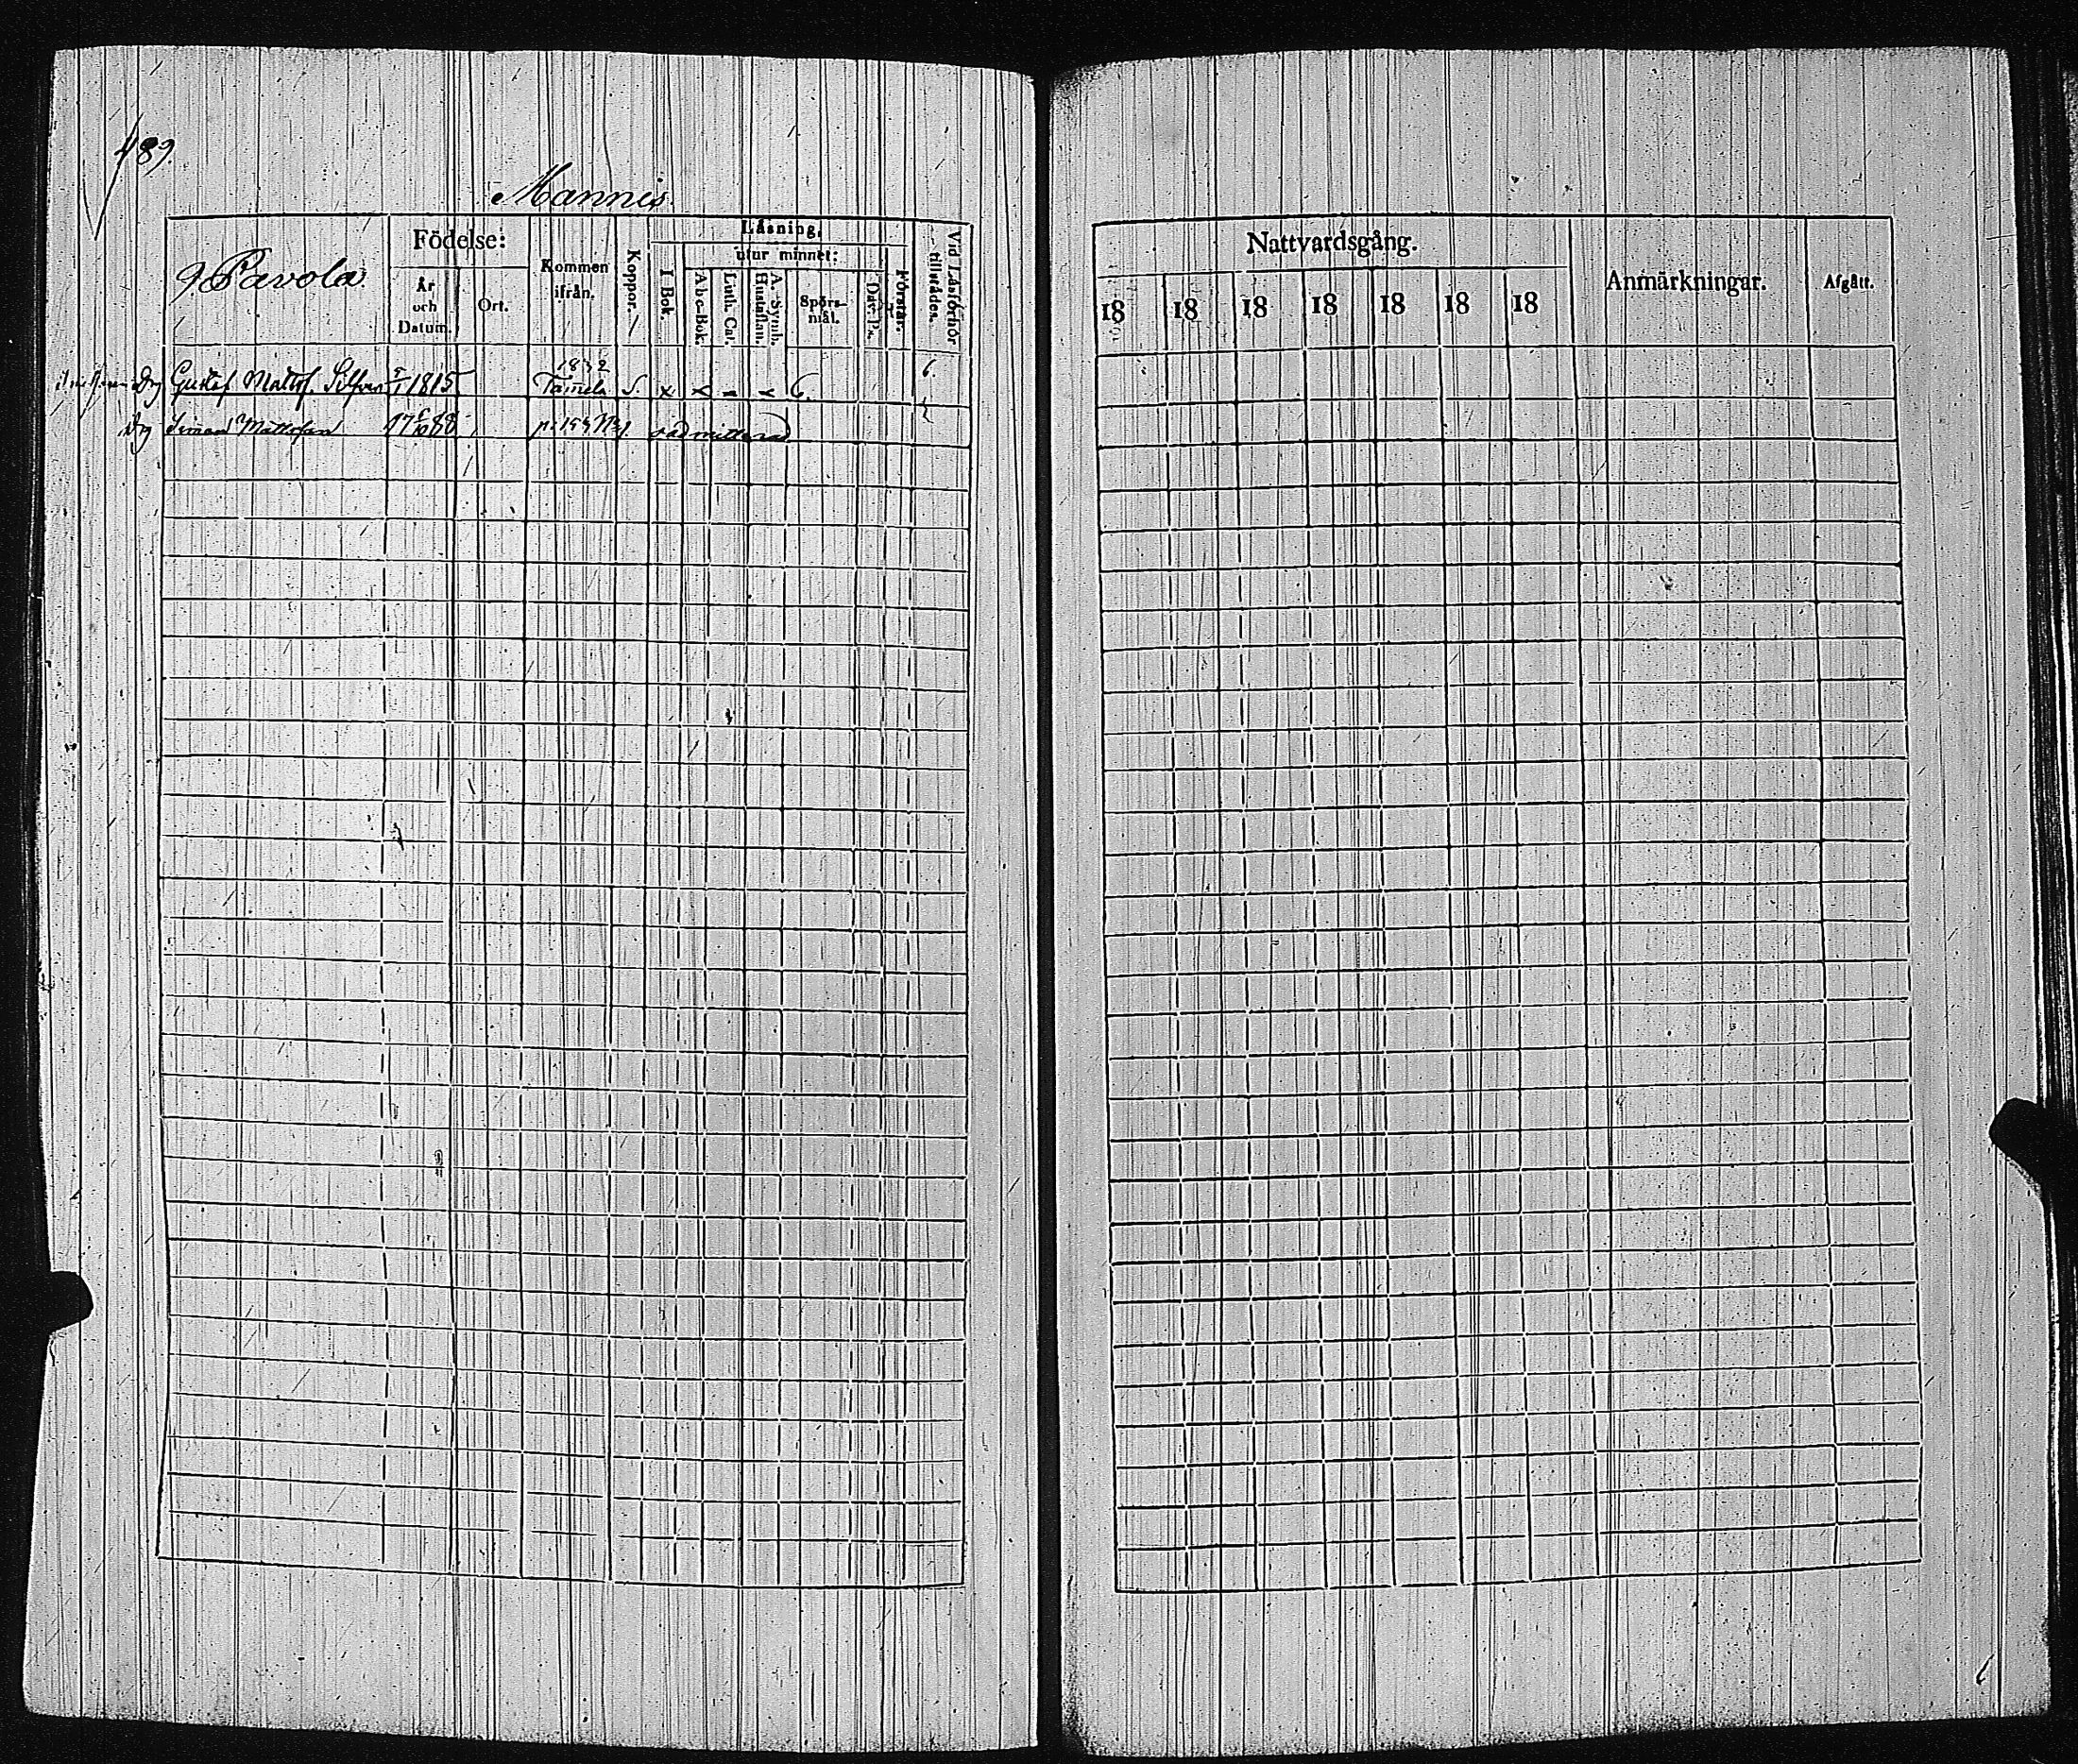 489.
Mannis
9. Pavola.
Födelse:
År och Datum.
Ort.
Kommen ifrån.
Koppor.
Läsning.
I Bok.
utur minnet:
Abc-Bok.
Luth. Cat.
A. Symb. Hustaflan.
Spörsmål.
Dav. Ps.
Förstår.
Vid Läsförhör tillstädes.
Nattvardsgång.
18 18 18 18 18 18 18
Anmärkningar.
Afgått.
1832
Drg Gustaf Mattss. Silfver 1815 Tamela S. x x x 6. 6.
Drg Simon Mattsson p. 159 admitterad